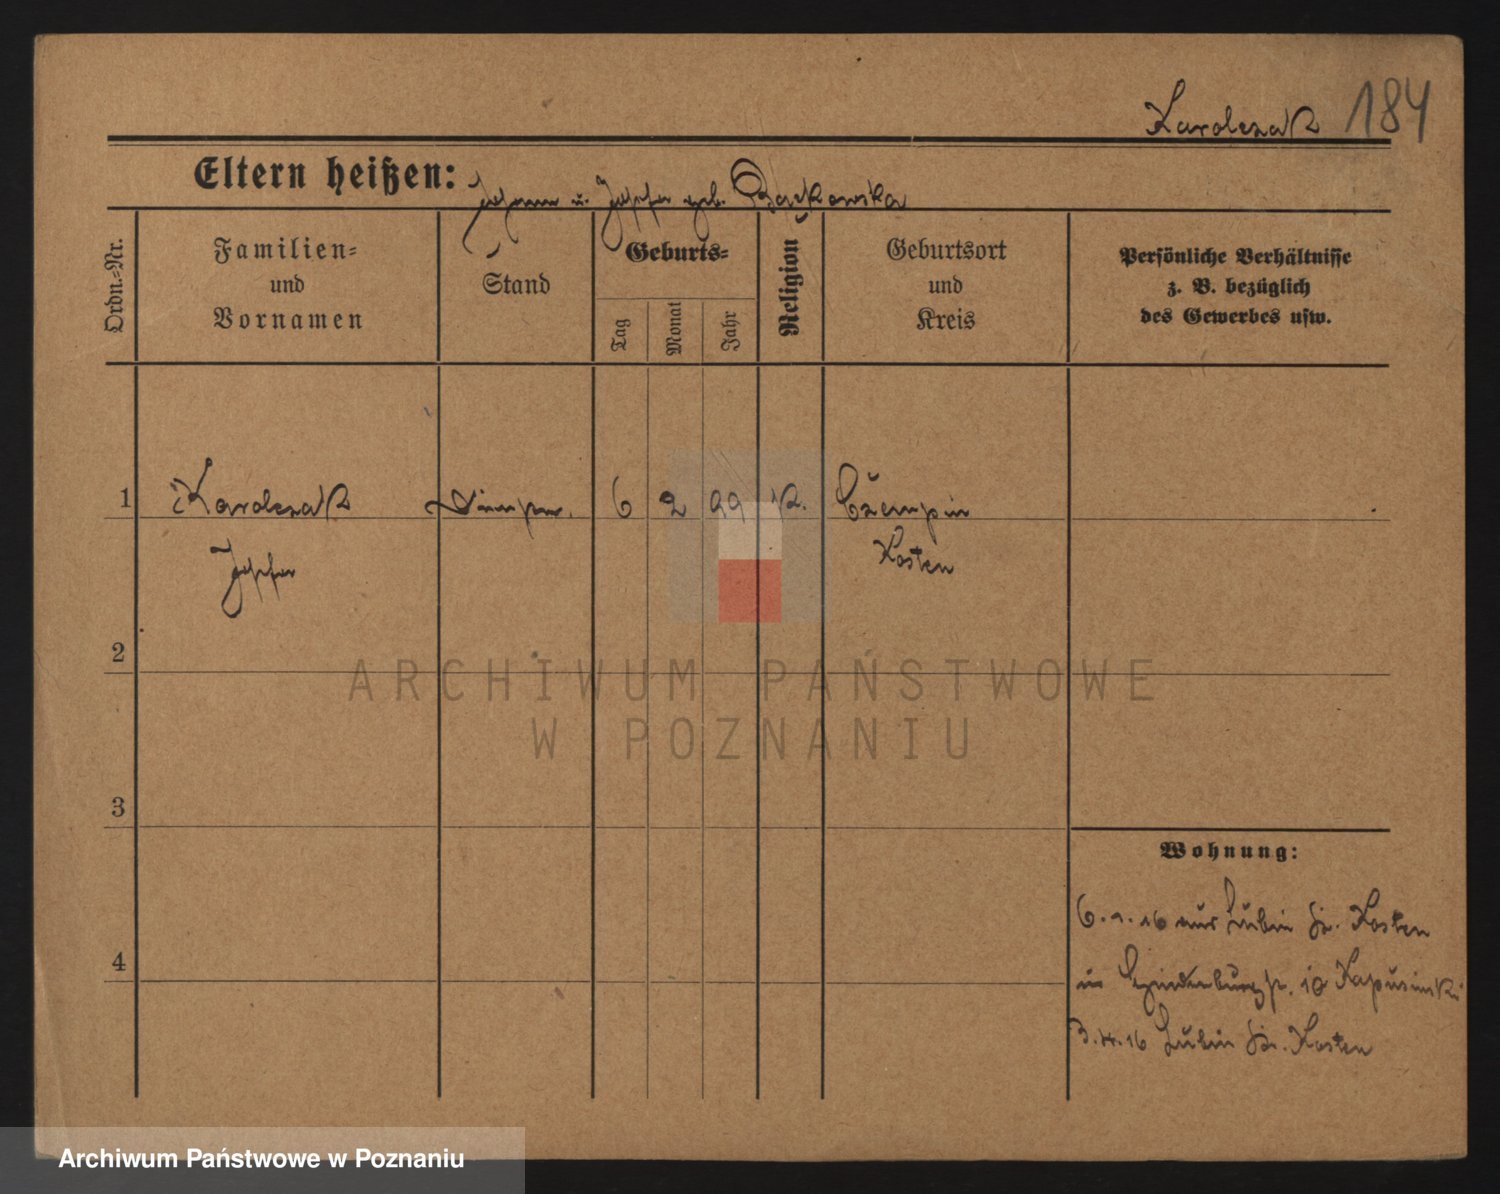 Karolczak 184
Eltern heißen: Johann u. Josefa geb. Baykowska
Ordn.-Nr.
Familien=
und
Vornamen
Stand
Geburts=
Tag
Monat
Jahr
Religion
Geburtsort
und
Kreis
Persönliche Verhältnisse
z. B. bezüglich
des Gewerbes usw.
1 Karolczak 6 2 99 k. Czempin
Josefa Kosten
2
ARCHIWUM PAŃSTWOWE
W POZNANIU
3
Wohnung:
6. 1. 16 aus Lubin Kr. Kosten
4
in Hindenburgstr. 10 Kapusinski
3. 4. 16 Lubin Kr. Kosten
Archiwum Państwowe w Poznaniu